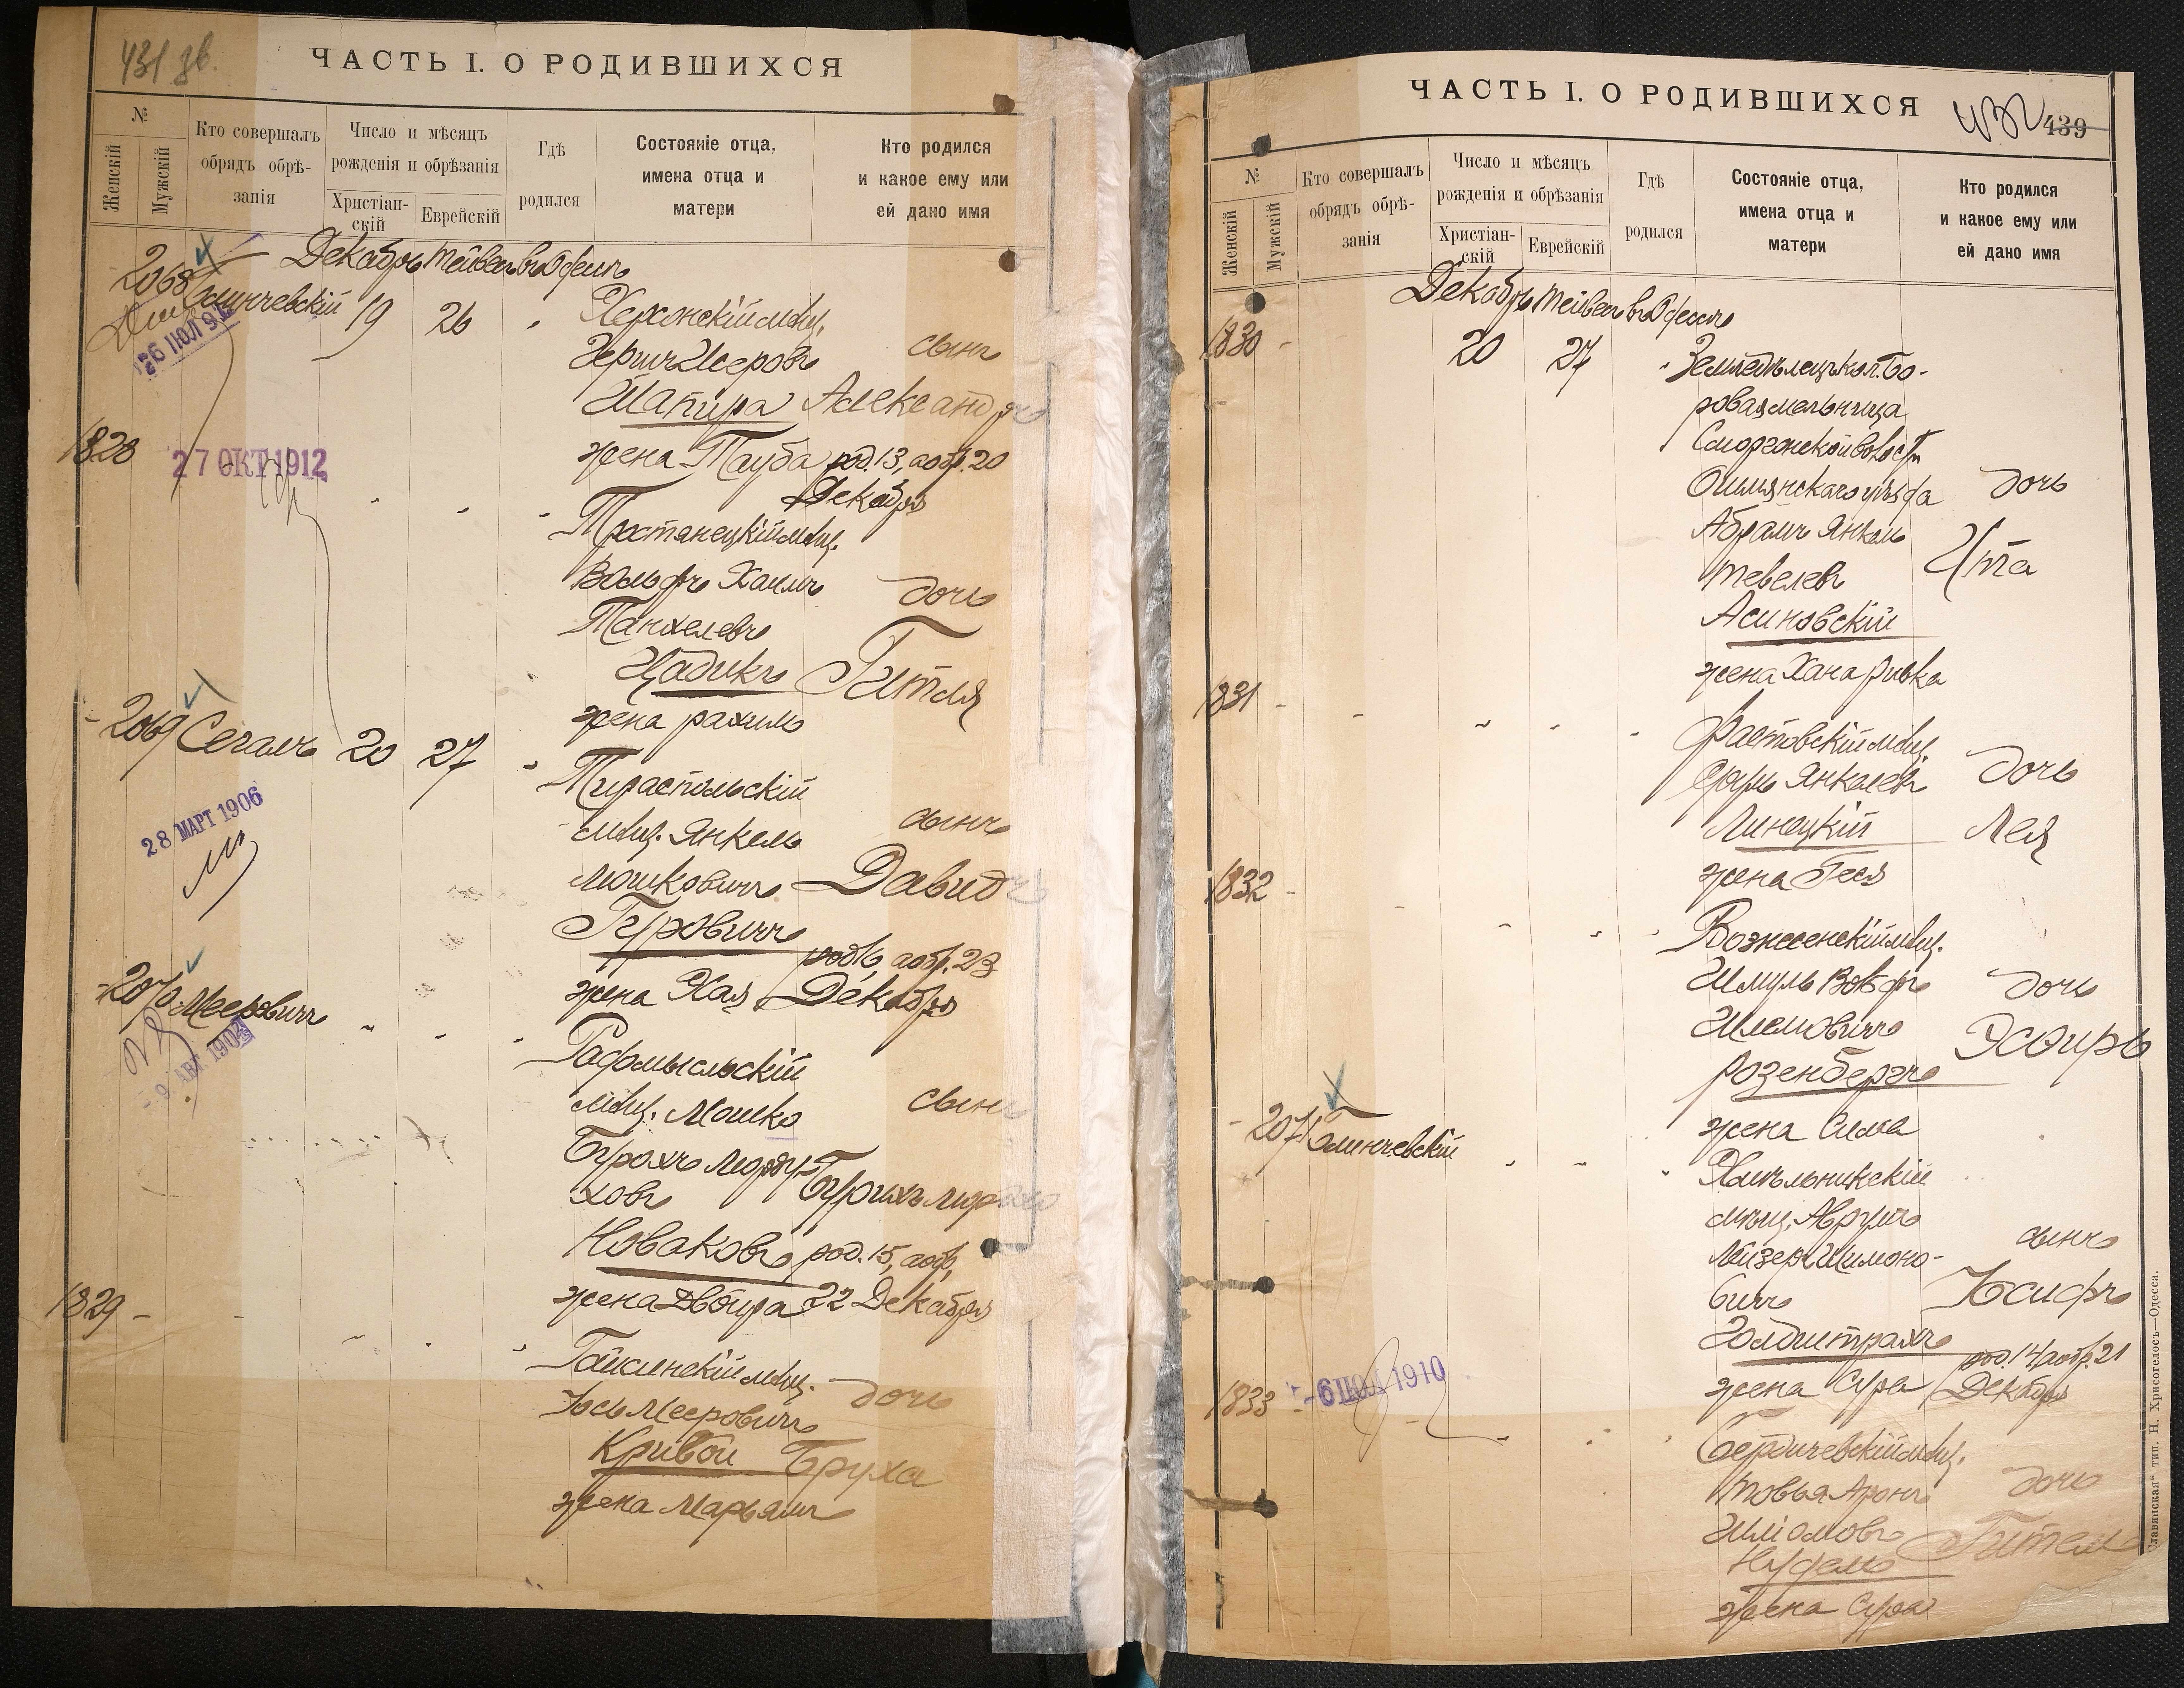 431 зв.
ЧАСТЬ I. О РОДИВШИХСЯ
№
Женскій
Мужскій
Кто совершалъ
обрядъ обрѣ-
занія
Число и мѣсяцъ
рожденія и обрѣзанія
Христіан-
скій
Еврейскій
Гдѣ
родился
Состояніе отца,
имена отца и
матери
Кто родился
и какое ему или
ей дано имя
Декабрь Тейвес въ Одессѣ
2068 19 26 Херсонскій мѣщ.
Гершъ Іосеровъ сынъ
Шапира Александръ
жена Тауба род. 13, а обр. 20
Декабря
1828
27 ОКТ 1912
Тростянецкій мѣщ.
Вольфъ Хаимъ дочь
Танхелевъ
Цадикъ Гитля
жена Рахиль
2069 Сегалъ 20 27 Тираспольскій
мѣщ. Янкель сынъ
Мошковичъ Давидъ
Гуровичъ род. 16, а обр. 23
жена Хая Декабря
28 МАРТ 1906
2070 Мееровичъ Радомысльскій
мѣщ. Мошко сынъ
Бурохъ Морду-
ховъ
Новаковъ род. 15, а обр.
жена Двойра 22 Декабря
1829
Гайсинскій мѣщ. дочь
Іось Мееровичъ
Кривой Бруха
жена Марьямъ
ЧАСТЬ I. О РОДИВШИХСЯ
432 439
№
Женскій
Мужскій
Кто совершалъ
обрядъ обрѣ-
занія
Число и мѣсяцъ
рожденія и обрѣзанія
Христіан-
скій
Еврейскій
Гдѣ
родился
Состояніе отца,
имена отца и
матери
Кто родился
и какое ему или
ей дано имя
Декабрь Тейвес въ Одессѣ
1830 20 27 Земледѣлецъ кол. Бо-
ровая мельница
Сморгонской волости
Ошмянскаго уѣзда дочь
Абрамъ Янкель Ита
Тевелевъ
Асиновскій
жена Хана Ривка
1831 Фастовскій мѣщ.
Янкелевъ дочь
Линецкій Лея
жена Геся
1832 Вознесенскій мѣщ.
Шмуль Вольфъ дочь
Шлемовичъ Эсѳирь
Розенбергъ
жена Сима
2071 Хмѣльникскій
мѣщ. Аврумъ
Лейзеръ Шимоно- сынъ
вичъ Іосифъ
Голдштрахъ род. 14, а обр. 21
жена Сура Декабря
1833 Бердичевскій мѣщ.
Товья Аронъ дочь
Шліомовъ Гитель
Нудель
жена Сура
"Славянская" тип. Н. Хрисогелосъ—Одесса.